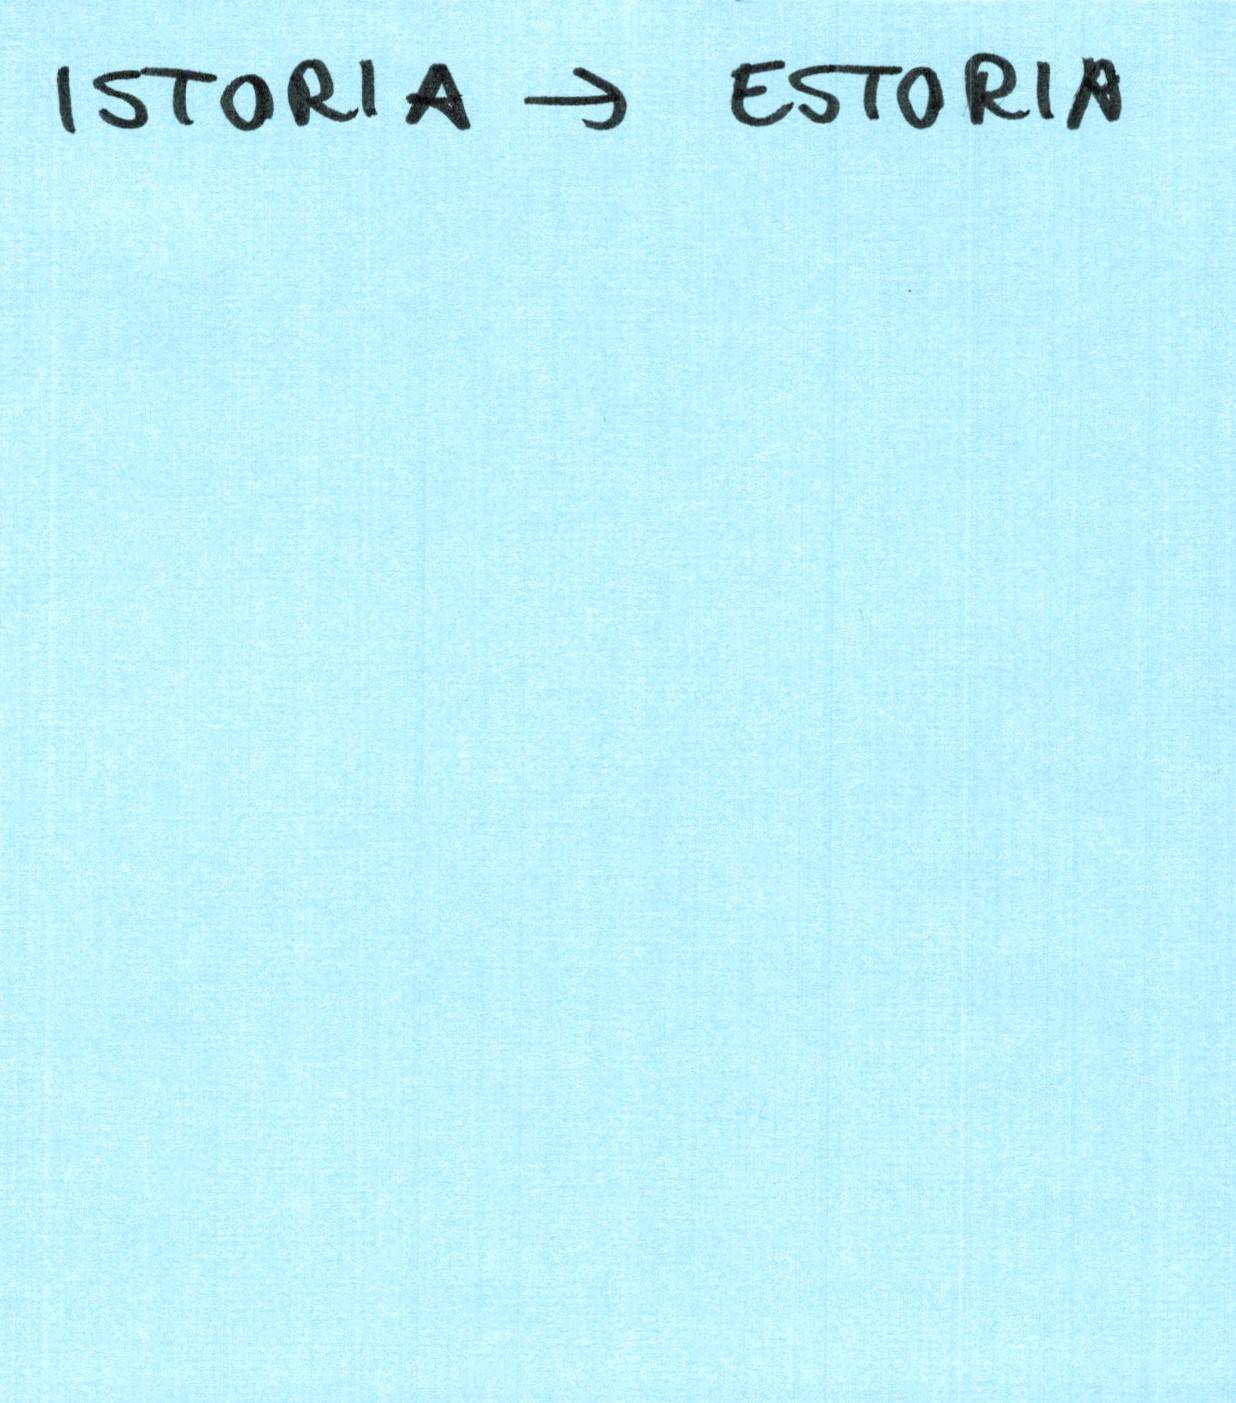 ISTORIA → ESTORIA